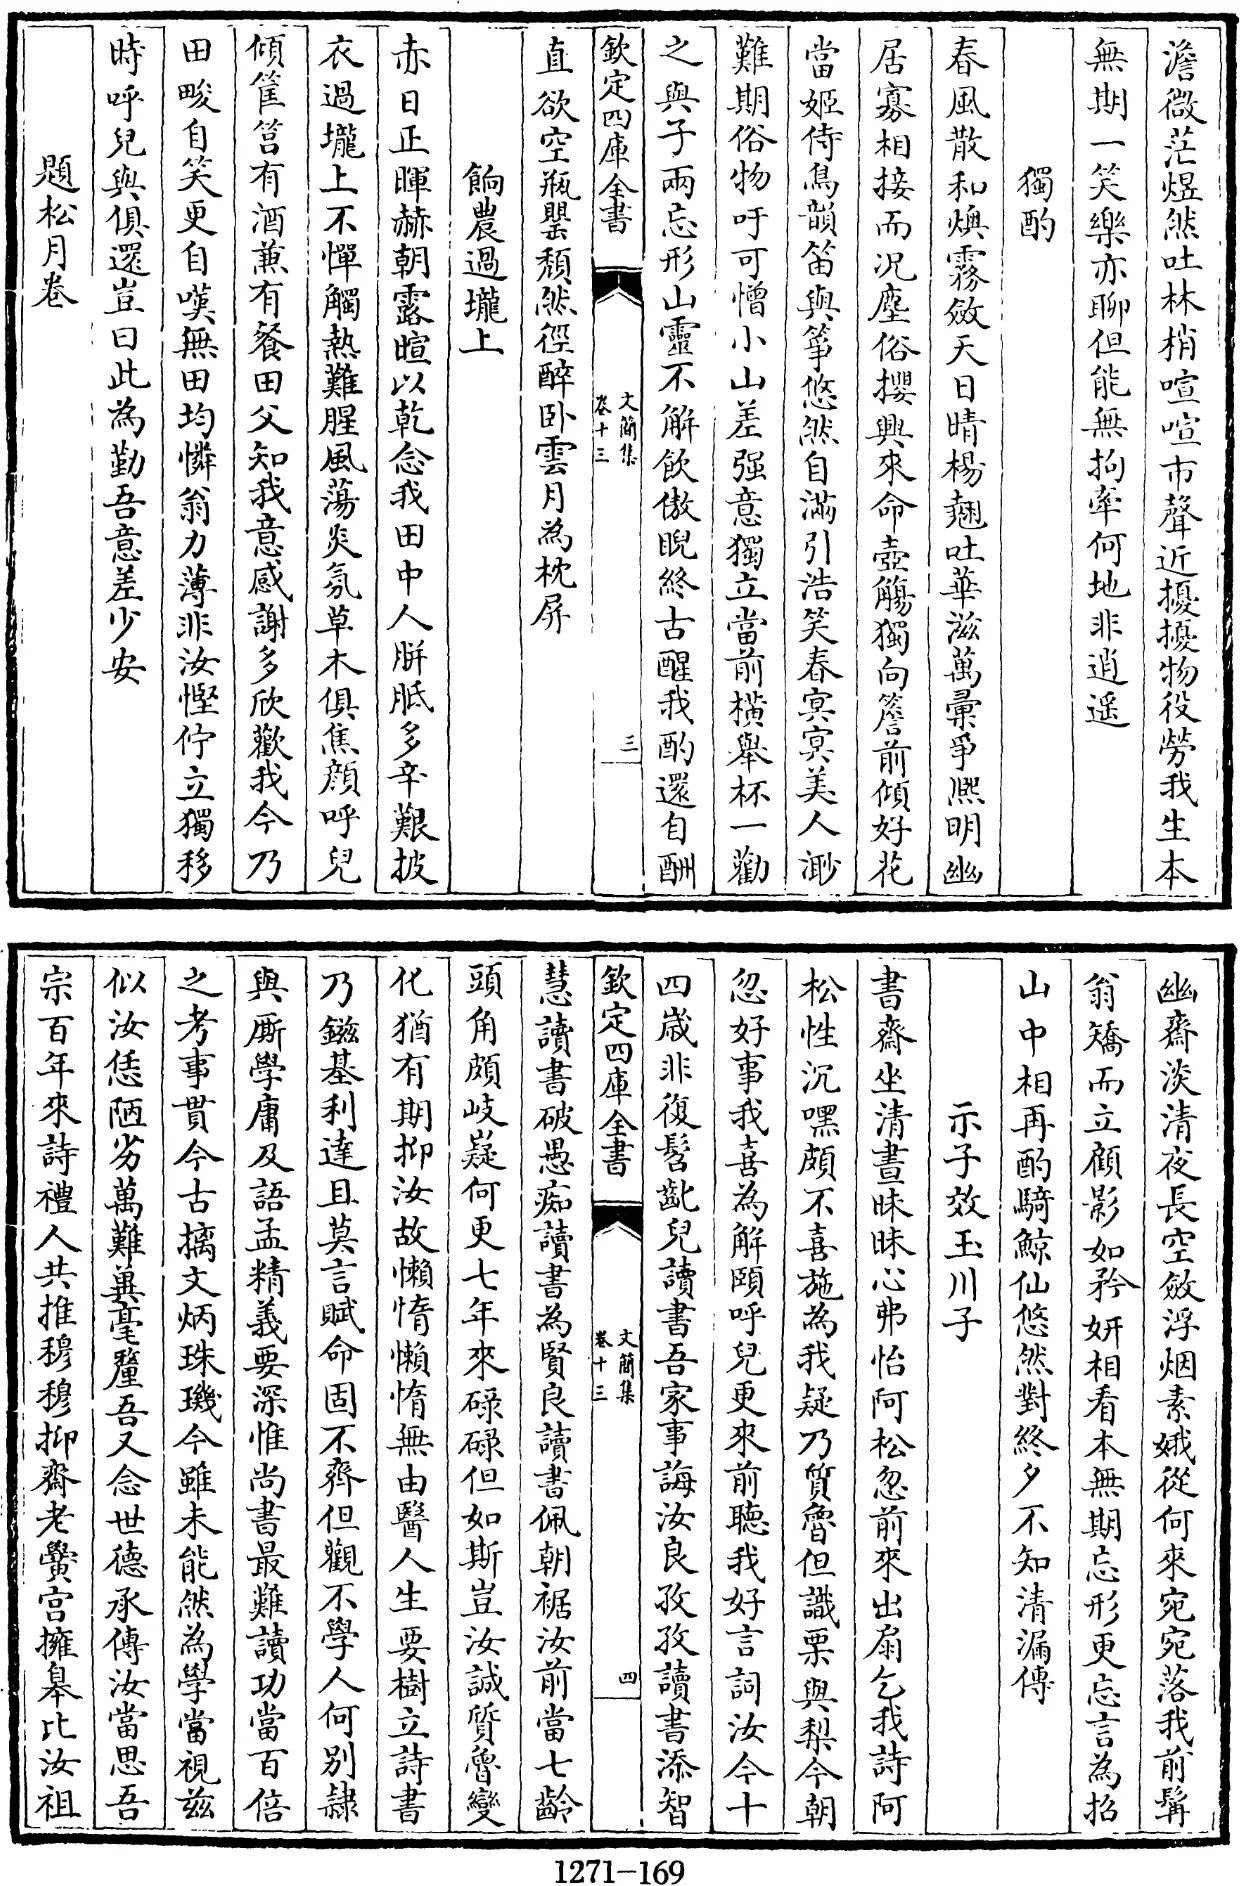 澹微茫煜然吐林梢喧喧市聲近擾擾物役勞我生本
無期一笑樂亦聊但能無拘牽何地非逍遥
獨酌
春風散和燠霧斂天日晴楊趐吐華滋萬彙爭熈明幽
居寡相接而况塵俗攖興來命壺觴獨向簷前傾好花
當姬侍鳥韻笛與箏悠然自滿引浩笑春冥冥美人渺
難期俗物吁可憎小山差强意獨立當前橫舉杯一勸
之與子兩忘形山靈不解飲傲睨終古醒我酌還自酬
欽定四庫全書
文簡集
卷十三
三
直欲空瓶罌頹然徑醉卧雲月為枕屏
餉農過壠上
赤日正暉赫朝露暄以乾念我田中人胼胝多辛艱披
衣過壠上不憚觸熱難腥風蕩炎氛草木俱焦顔呼兒
傾筐筥有酒蒹有餐田父知我意感謝多欣歡我今乃
田畯自笑更自嘆無田均憐翁力薄非汝慳佇立獨移
時呼兒與俱還豈曰此為勤吾意差少安
題松月卷
幽齋淡清夜長空斂浮烟素娥從何來宛宛落我前髯
翁矯而立顧影如矜妍相看本無期忘形更忘言為招
山中相再酌騎鯨仙悠然對終夕不知清漏傳
示子效玉川子
書齋坐清晝昧昧心弗怡阿松忽前來出扇乞我詩阿
松性沉嘿頗不喜施為我疑乃質魯但識栗與梨今朝
忽好事我喜為解頤呼兒更來前聽我好言詞汝今十
四歲非復髫齔兒讀書吾家事誨汝良孜孜讀書添智
欽定四庫全書
文簡集
卷十三
四
慧讀書破愚痴讀書為賢良讀書佩朝裾汝前當七齡
頭角頗岐嶷何更七年來碌碌但如斯豈汝誠質魯變
化猶有期抑汝故懶惰懶惰無由醫人生要樹立詩書
乃鎡基利達且莫言賦命固不齊但觀不學人何别隸
與厮學庸及語孟精義要深惟尚書最難讀功當百倍
之考事貫今古摛文炳珠璣今雖未能然為學當視兹
似汝恁陋劣萬難兾毫釐吾又念世德承傳汝當思吾
宗百年來詩禮人共推穆穆抑齋老黌宫擁皋比汝祖
1271-169